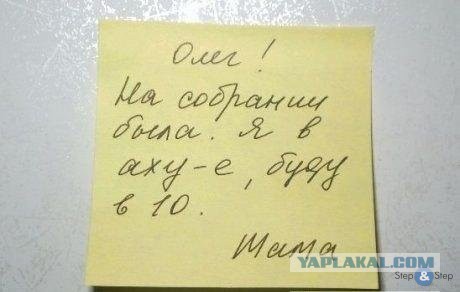 Олег!
На собрании
была. Я в
аху-е, буду
в 10.
Мама
YAPLAKAL.COM
Step & Step